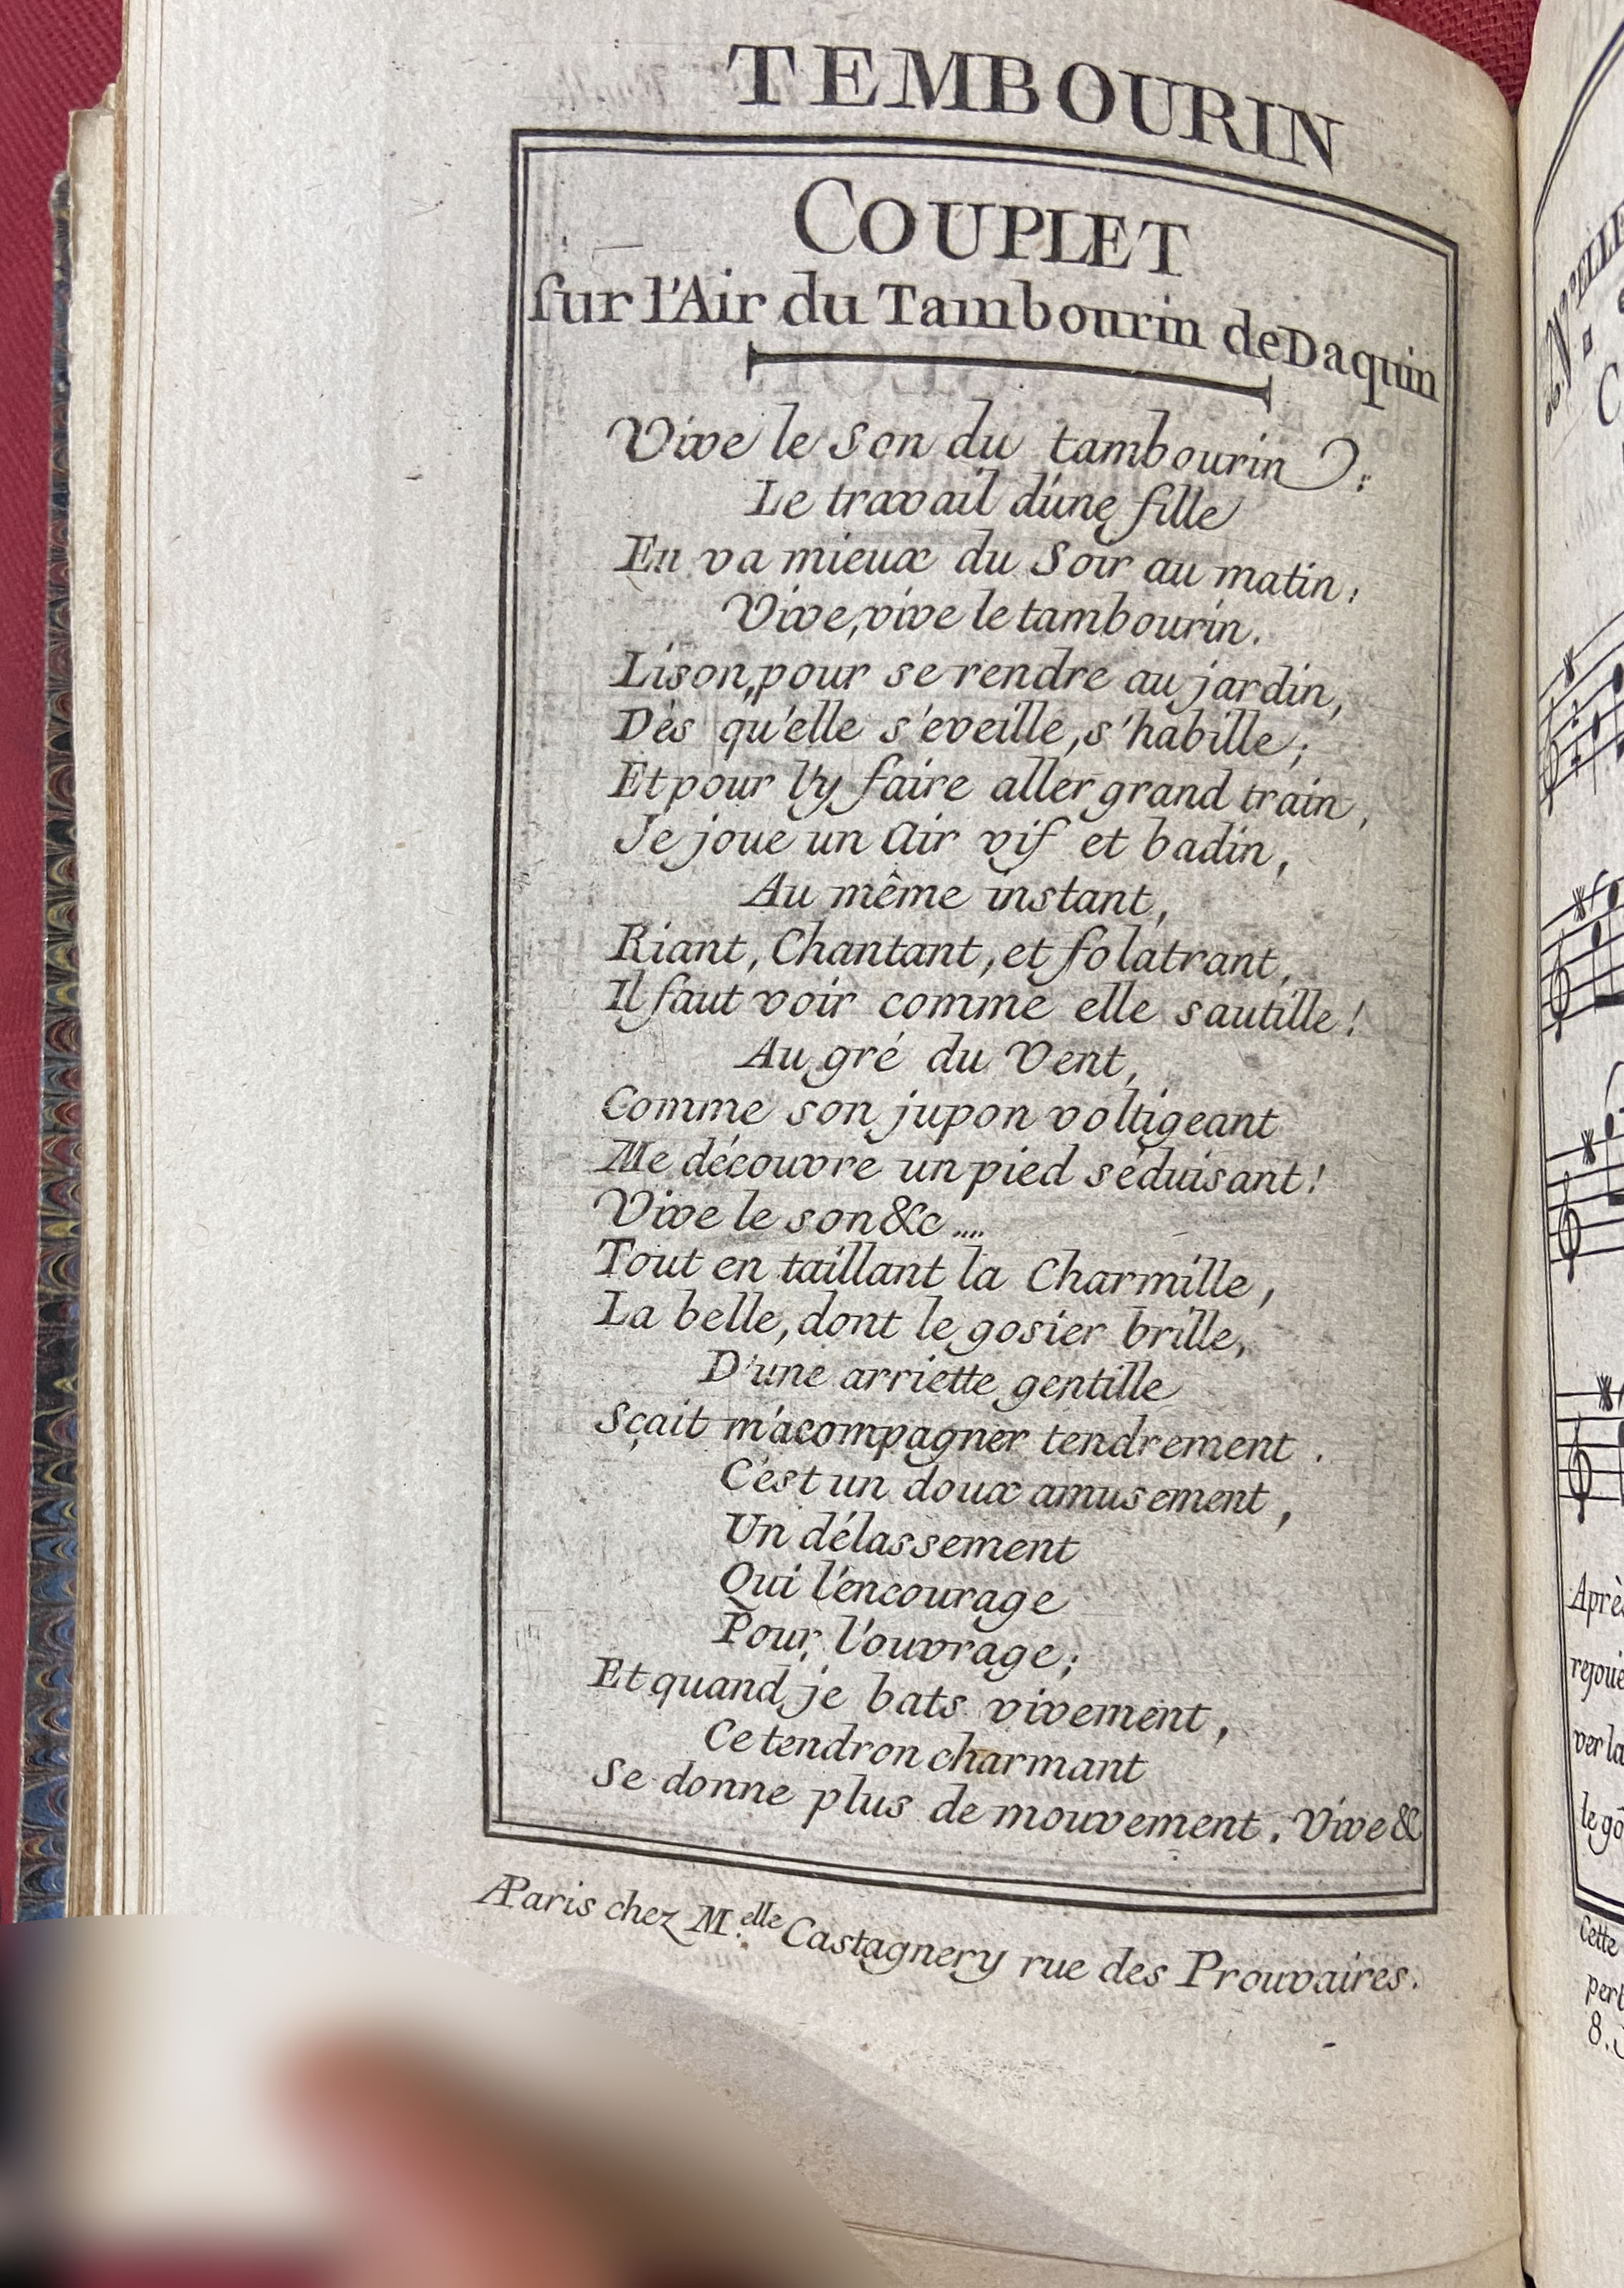 TEMBOURIN
COUPLET
sur l'Air du Tambourin de Daquin
Vive le Son du tambourin :
Le travail d'une fille
En va mieux du Soir au matin :
Vive, vive le tambourin.
Lison, pour se rendre au jardin,
Dès qu'elle s'éveille, s'habille ;
Et pour l'y faire aller grand train,
Je joue un Air vif et badin,
Au même instant,
Riant, Chantant, et folatrant,
Il faut voir comme elle sautille !
Au gré du Vent,
Comme son jupon voltigeant
Me découvre un pied séduisant !
Vive le son &c ....
Tout en taillant la Charmille,
La belle, dont le gosier brille,
D'une arriette gentille
Sçait m'acompagner tendrement.
C'est un doux amusement,
Un délassement
Qui l'encourage
Pour l'ouvrage ;
Et quand je bats vivement,
Ce tendron charmant
Se donne plus de mouvement. Vive &c
A Paris chez M.elle Castagnery rue des Prouvaires.
Cette
8.